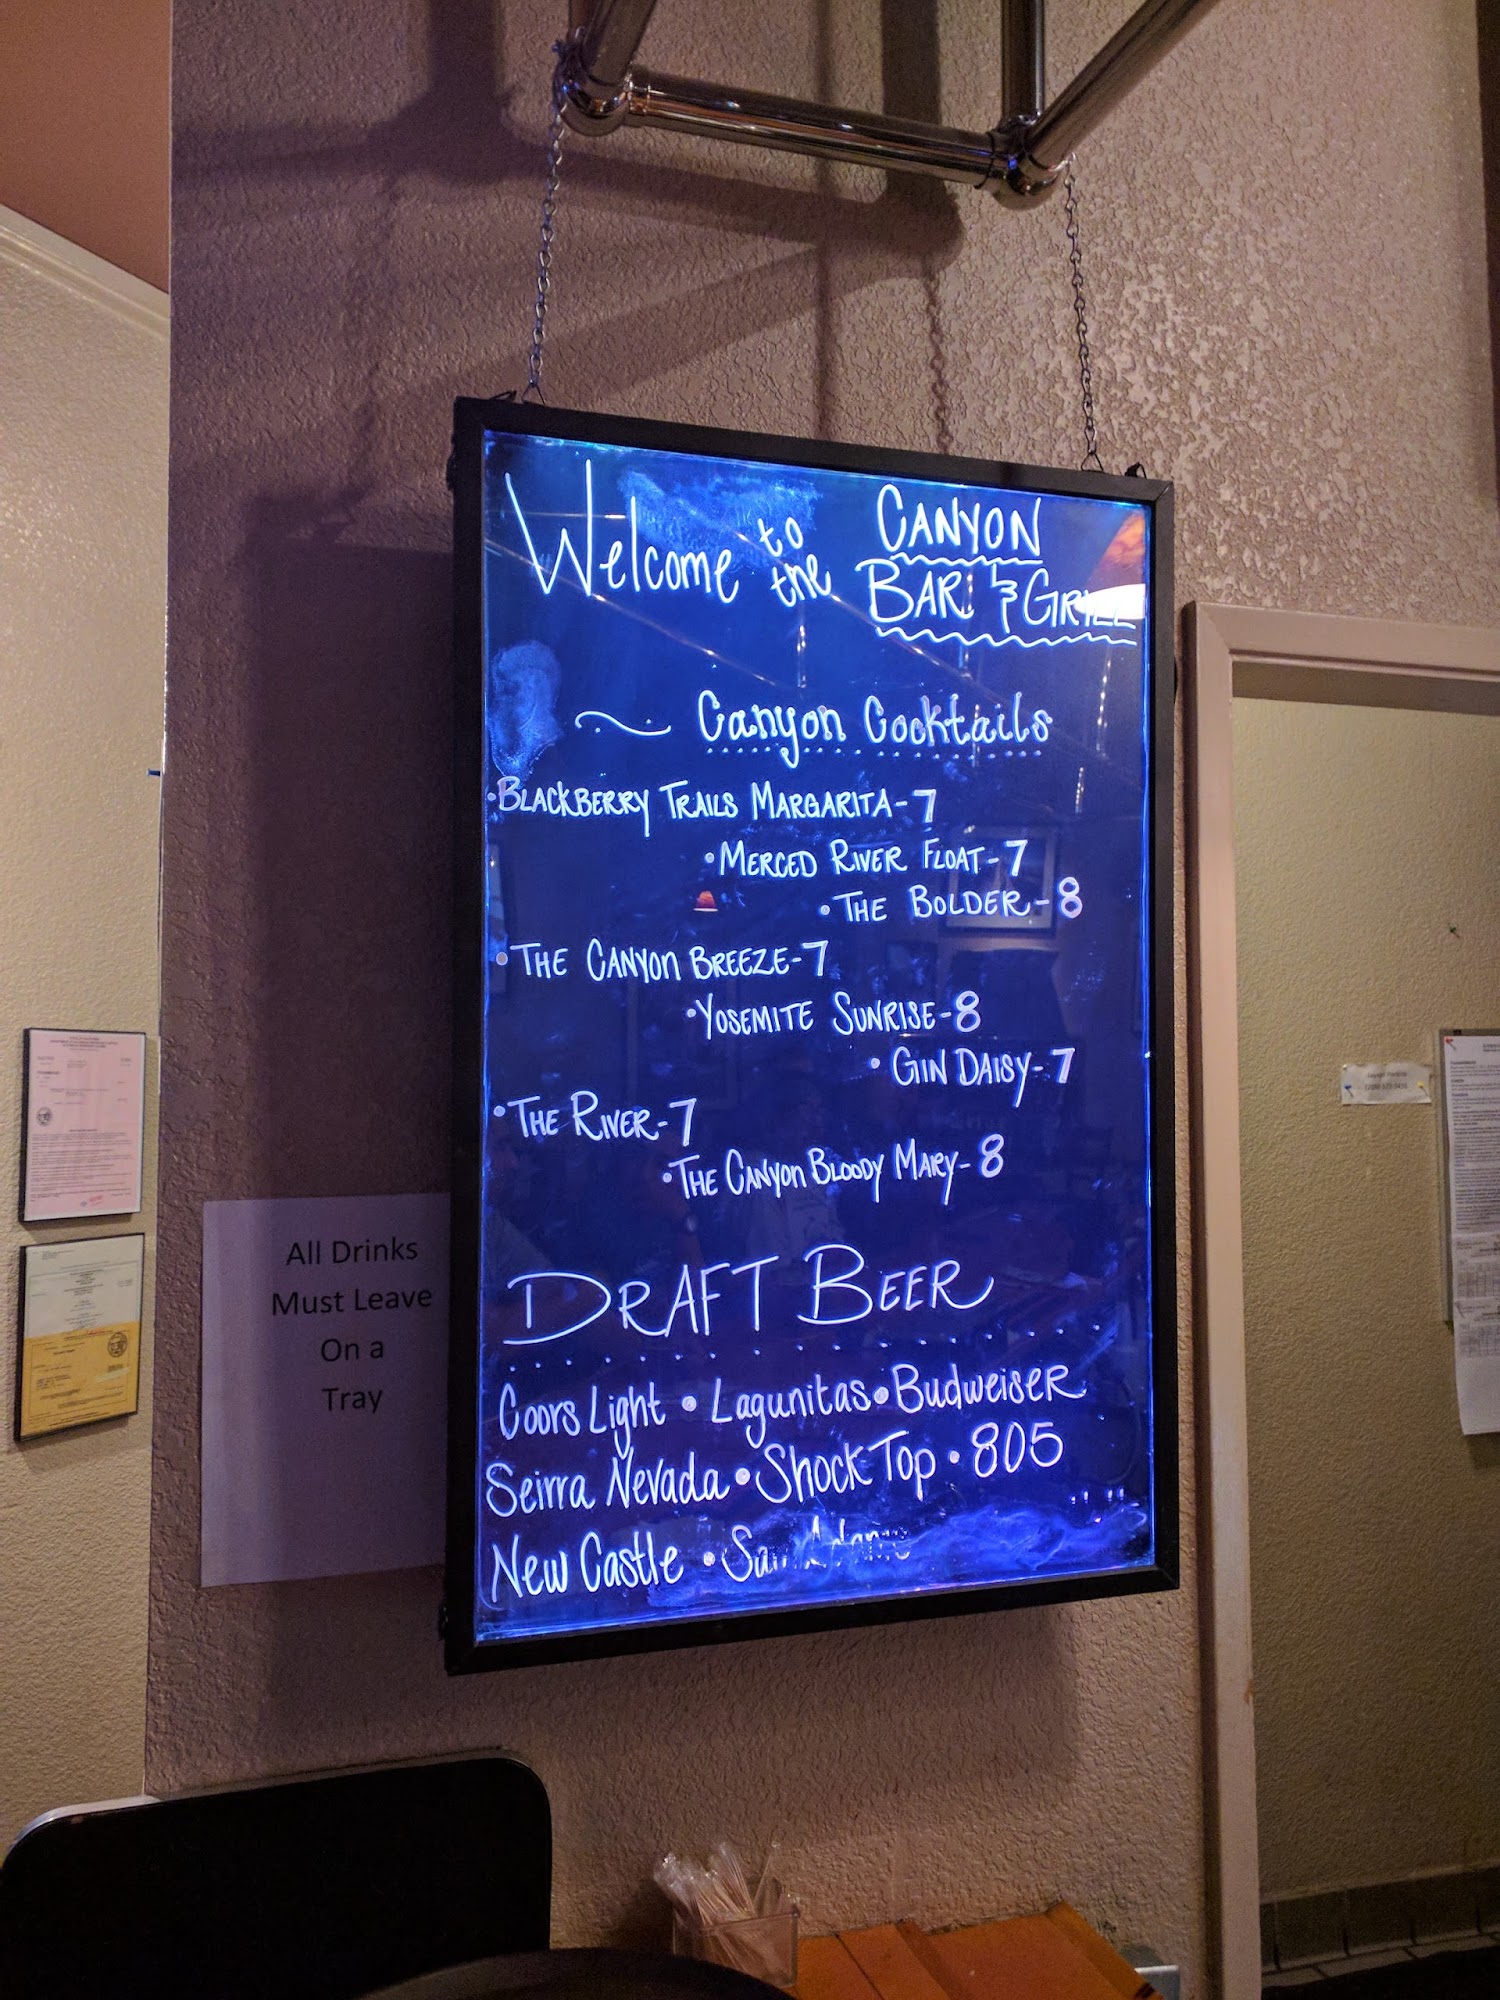 Welcome to the CANYON
BAR & GRILL
Canyon Cocktails
•BLACKBERRY TRAILS MARGARITA-7
•MERCED RIVER FLOAT-7
•THE BOLDER-8
•THE CANYON BREEZE-7
•YOSEMITE SUNRISE-8
•GIN DAISY-7
•THE RIVER-7
•THE CANYON BLOODY MARY-8
DRAFT BEER
Coors Light • Lagunitas • Budweiser
Seirra Nevada • Shock Top • 805
New Castle • Sam Adams
All Drinks
Must Leave
On a
Tray